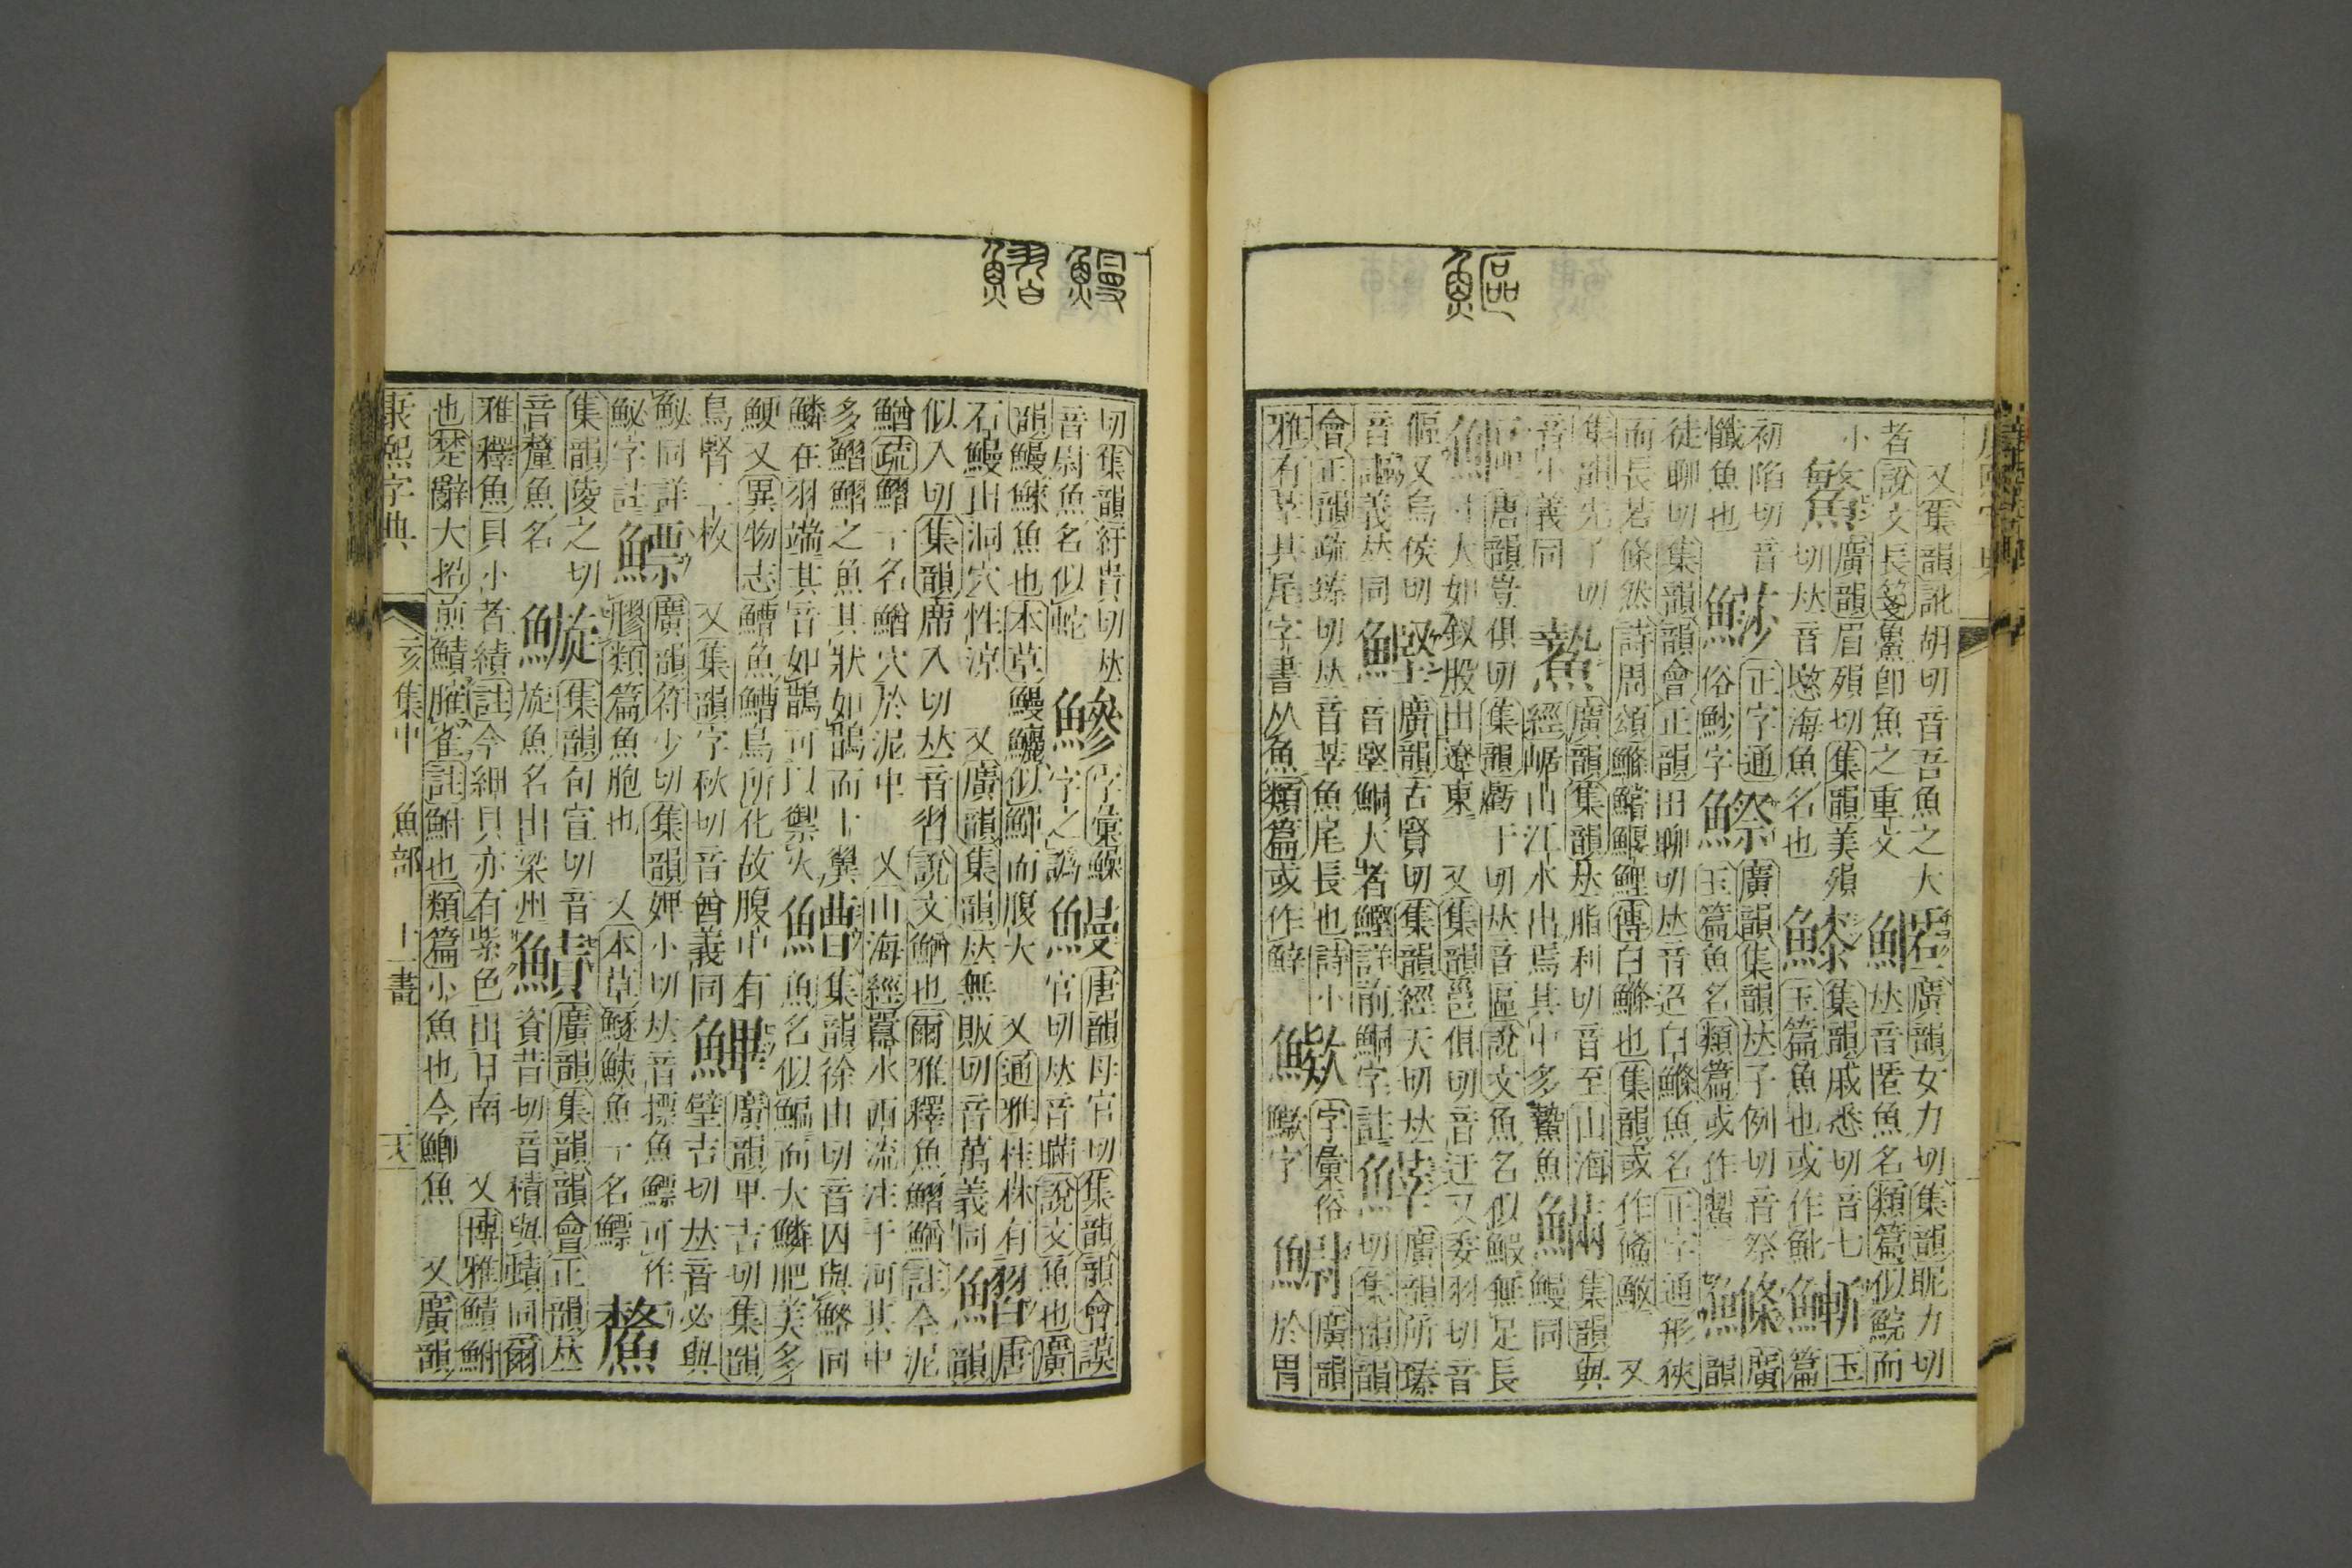 鰸
又集韻訛胡切音吾魚之大
者說文長箋䲣卽魚之重文
鰙廣韻女力切集韻昵力切
𠀤音匿魚名類篇似鯇而
小
廣韻眉殞切集韻美殞
切𠀤音愍海魚名也
集韻戚悉切音七
玉篇魚也或作魤
玉篇
初陷切音
懺魚也
正字通
俗魦字
鰶廣韻集韻𠀤子例切音祭
玉篇魚名類篇或作䱥
鰷廣韻
徒聊切集韻韻會正韻田聊切𠀤音迢白鰷魚名正字通形狹
而長若條然詩周頌鰷鱨鰋鯉傳白鰷也集韻或作鯈 又
集韻先了切
音小義同
廣韻集韻𠀤脂利切音至山海
經崌山江水出焉其中多鷙魚
集韻與
鰻同
唐韻豈俱切集韻虧于切𠀤音區說文魚名似鰕無足長
寸大如釵股出遼東 又集韻邕俱切音迂又委羽切音
傴又烏侯切
音謳義𠀤同
鰹廣韻古賢切集韻經天切𠀤
音堅鮦大者鰹詳前鮦字註
廣韻所臻
切集韻韻
會正韻疏臻切𠀤音莘魚尾長也詩小
雅有莘其尾字書从魚類篇或作鮮
字彙俗
鱖字
廣韻
於胃
鰻
鰼
切集韻紆貴切𠀤
音尉魚名似蛇
鰺字彙鱢
字之譌
鰻唐韻母官切集韻韻會謨
官切𠀤音瞞說文魚也廣
韻鰻鯠魚也本草鰻鱺似鱓而腹大 又通雅桂林有
石鰻出洞穴性涼 又廣韻集韻𠀤無販切音萬義同
鰼唐韻
似入切集韻席入切𠀤音習說文鰌也爾雅釋魚鰼鰌註今泥
鰌疏鰼一名鰌穴於泥中 又山海經嚻水西流注于河其中
多鰼鰼之魚其狀如鵲而十翼
鱗在羽端其音如鵲可以禦火
鰽集韻徐由切音囚與鮂同
魚名似鯿而大鱗肥美多
鯁又異物志鰽魚鰽鳥所化故腹中有
鳥腎二枚 又集韻字秋切音酋義同
廣韻甲吉切集韻
壁吉切𠀤音必與
鮅同詳
鮅字註
鰾廣韻符少切集韻婢小切𠀤音摽魚鰾可作
膠類篇魚胞也 又本草鱁鮧魚一名鰾
集韻陵之切
音釐魚名
集韻旬宣切音
旋魚名出梁州
鰿廣韻集韻韻會正韻𠀤
資昔切音積與蹟同爾
雅釋魚貝小者鰿註今細貝亦有紫色出日南 又博雅鰿鮒
也楚辭大招煎鰿臛雀註鮒也類篇小魚也今鯽魚 又廣韻
康熙字典 亥集中 魚部 十一畫 二六